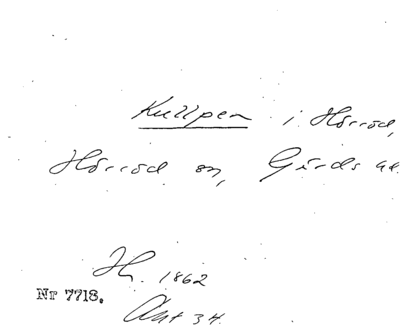 Kullpen i Hörröd,
Hörröd sn, Gärds hd.
H. 1862
Nr 7718.
Ant 34.